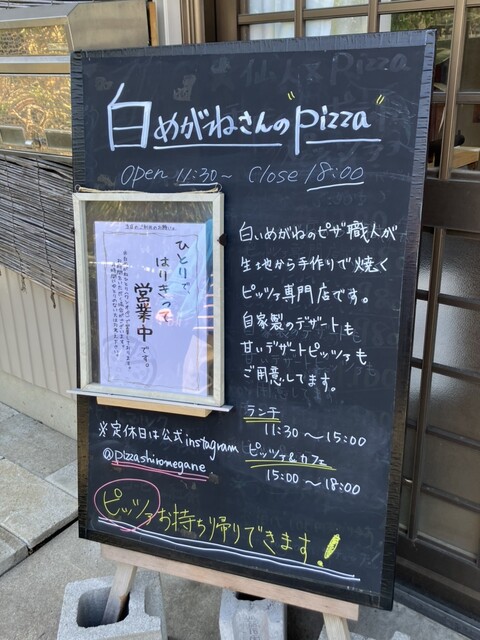 白めがねさんの"pizza"
Open 11:30～ Close 18:00
ひとりで
はりきって
営業中です。
白いめがねのピザ職人が
生地から手作りで焼く
ピッツァ専門店です。
自家製のデザートも
甘いデザートピッツァも
ご用意してます。
ランチ
11:30～15:00
ピッツァ&カフェ
15:00～18:00
※定休日は公式instagram
@pizzashiromegane
ピッツァお持ち帰りできます!